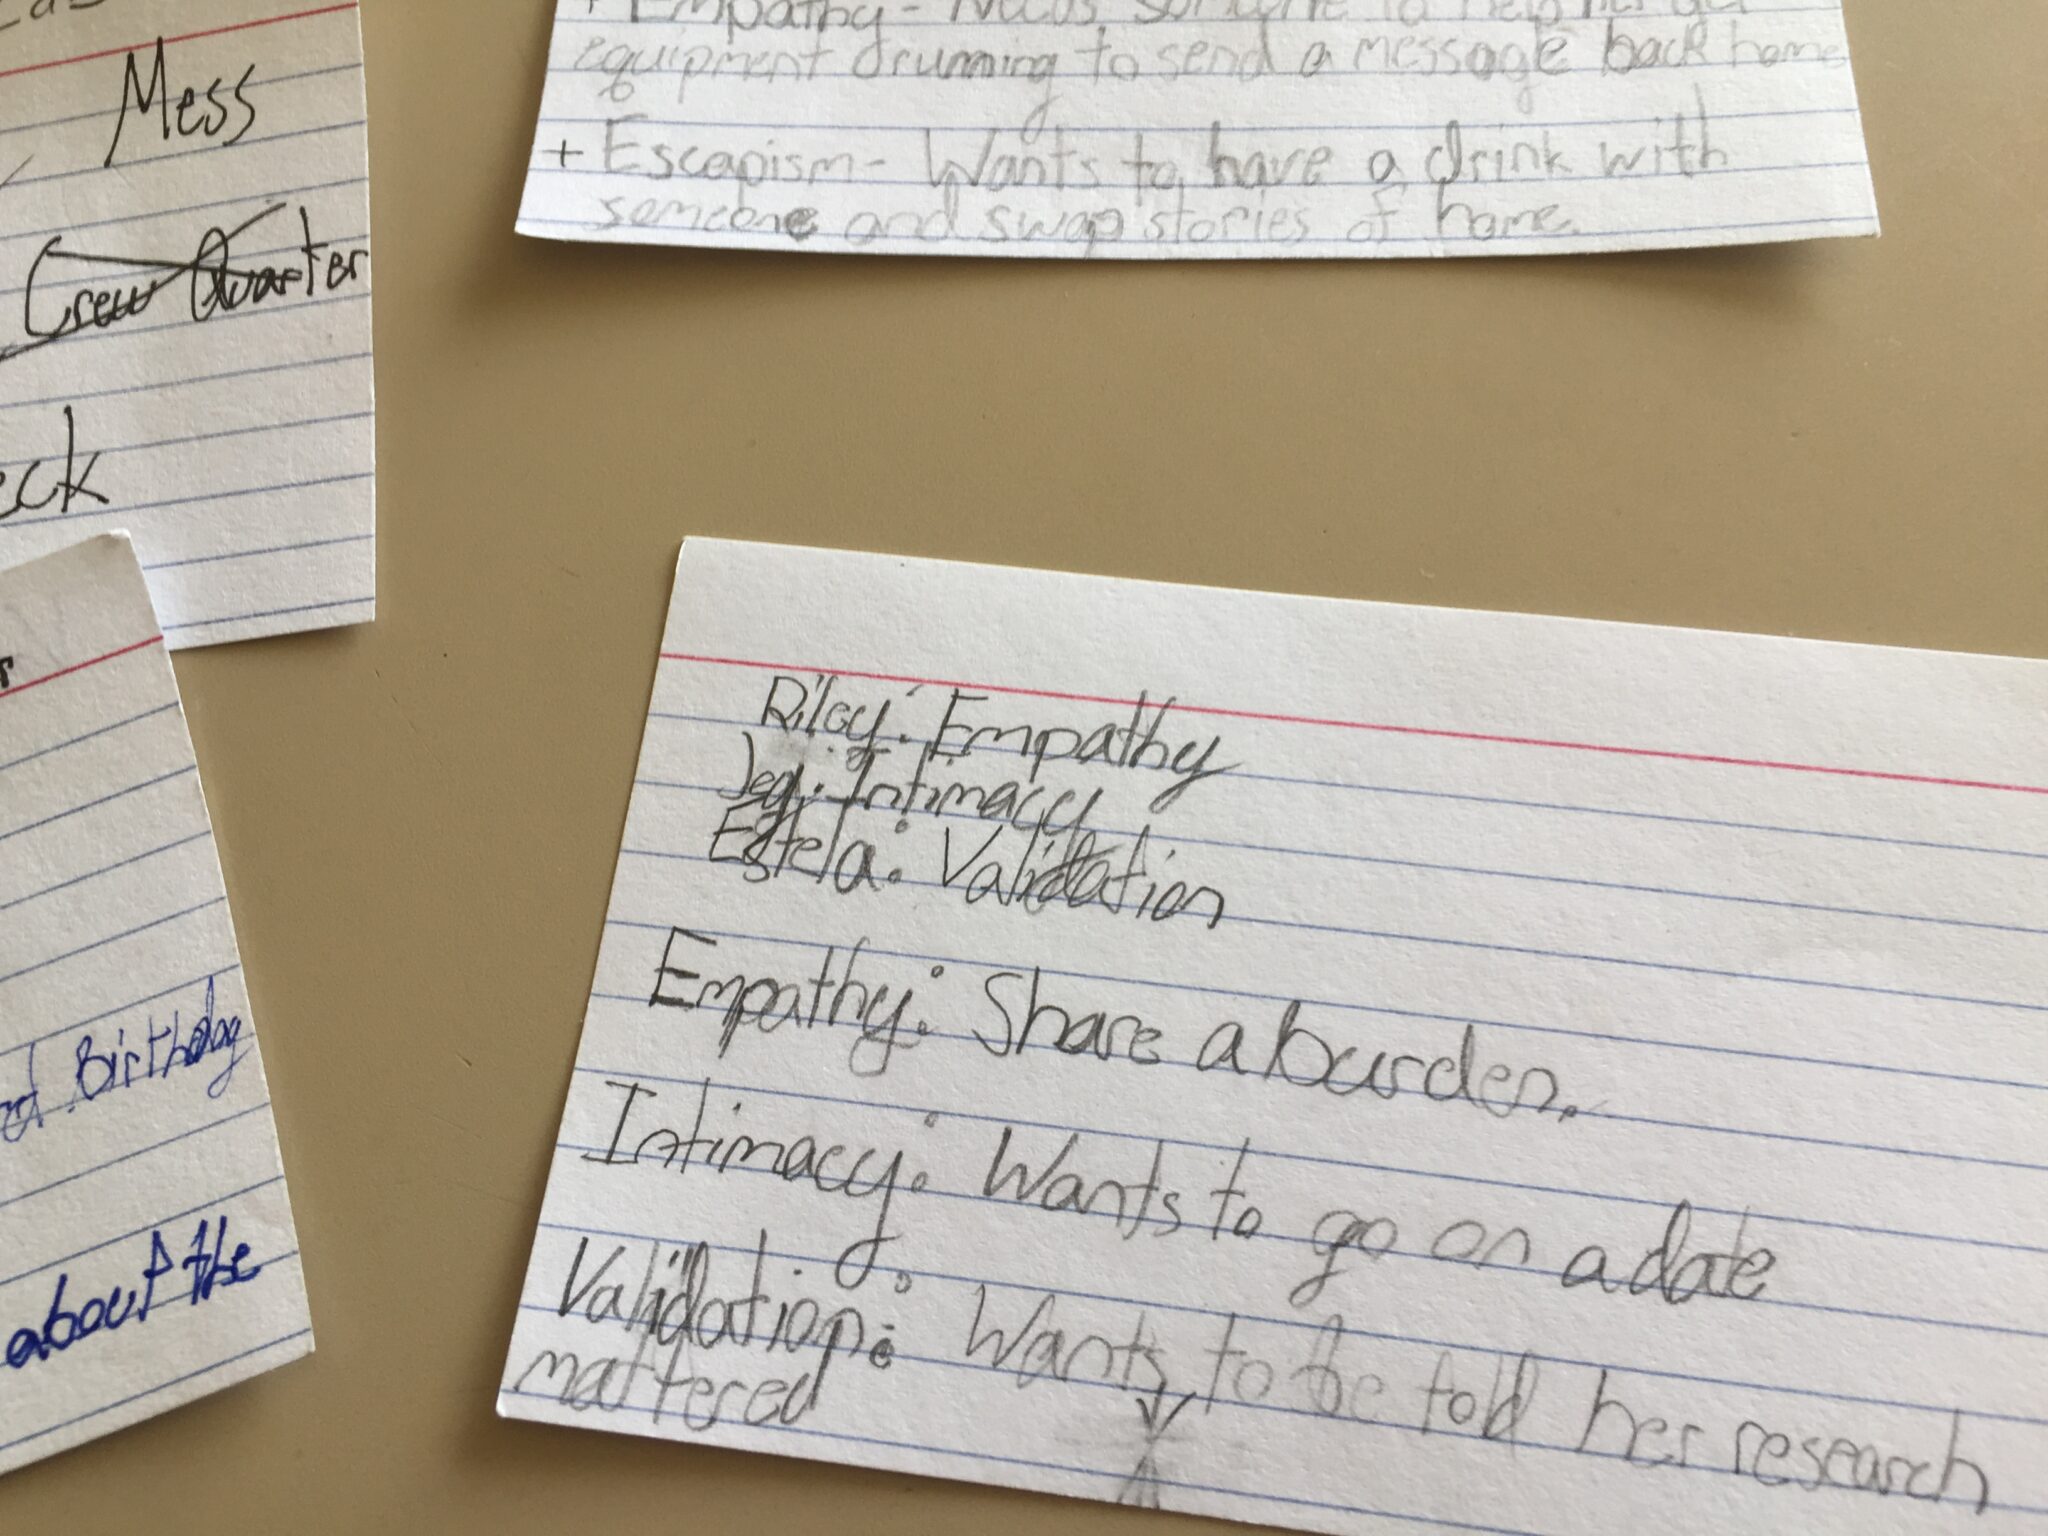 Mess
Crew Quarter
eck
+ Empathy - Needs someone to help her get
equipment drumming to send a message back home
+ Escapism - Wants to have a drink with
someone and swap stories of home.
Riley: Empathy
Intimacy
Estela: Validation
Empathy: Share a burden.
Intimacy: Wants to go on a date
Validation: Wants to be told her research
mattered
Birthday
about the